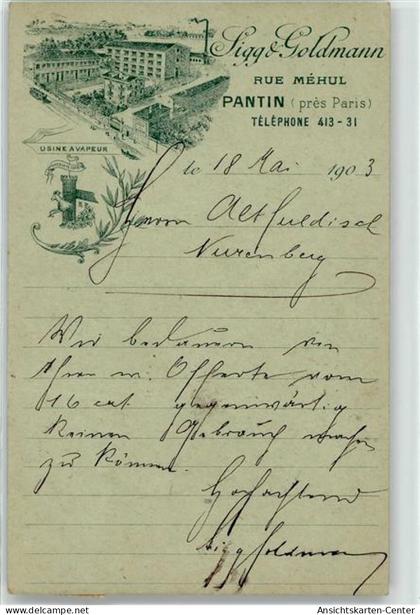 Sigg & Goldmann
RUE MÉHUL
PANTIN (près Paris)
TÉLÉPHONE 413-31
USINE A VAPEUR
le 18 Mai 1903
Herrn Altfuldisch
Nurenberg
Wir bedauern von
Ihrer w. Offerte vom
16 crt. gegenwärtig
keinen Gebrauch machen
zu können
Hochachtend
Sigg Goldmann
https://www.oldthing.com
Ansichtskarten-Center